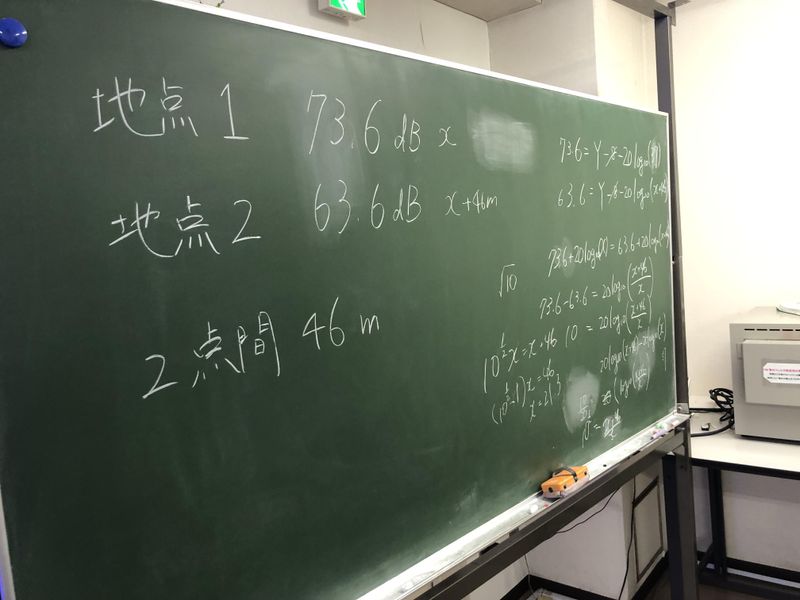 地点1 73.6 dB x
地点2 63.6 dB x+46m
2点間 46 m
73.6 = Y-8-20log₁₀(x)
63.6 = Y-8-20log₁₀(x+46)
73.6+20log₁₀(x) = 63.6+20log₁₀(x+46)
√10
73.6-63.6 = 20log₁₀(x+46/x)
10 = 20log₁₀(x+46/x)
10^½x = x+46
(10^½-1)x = 46
x = 21.3